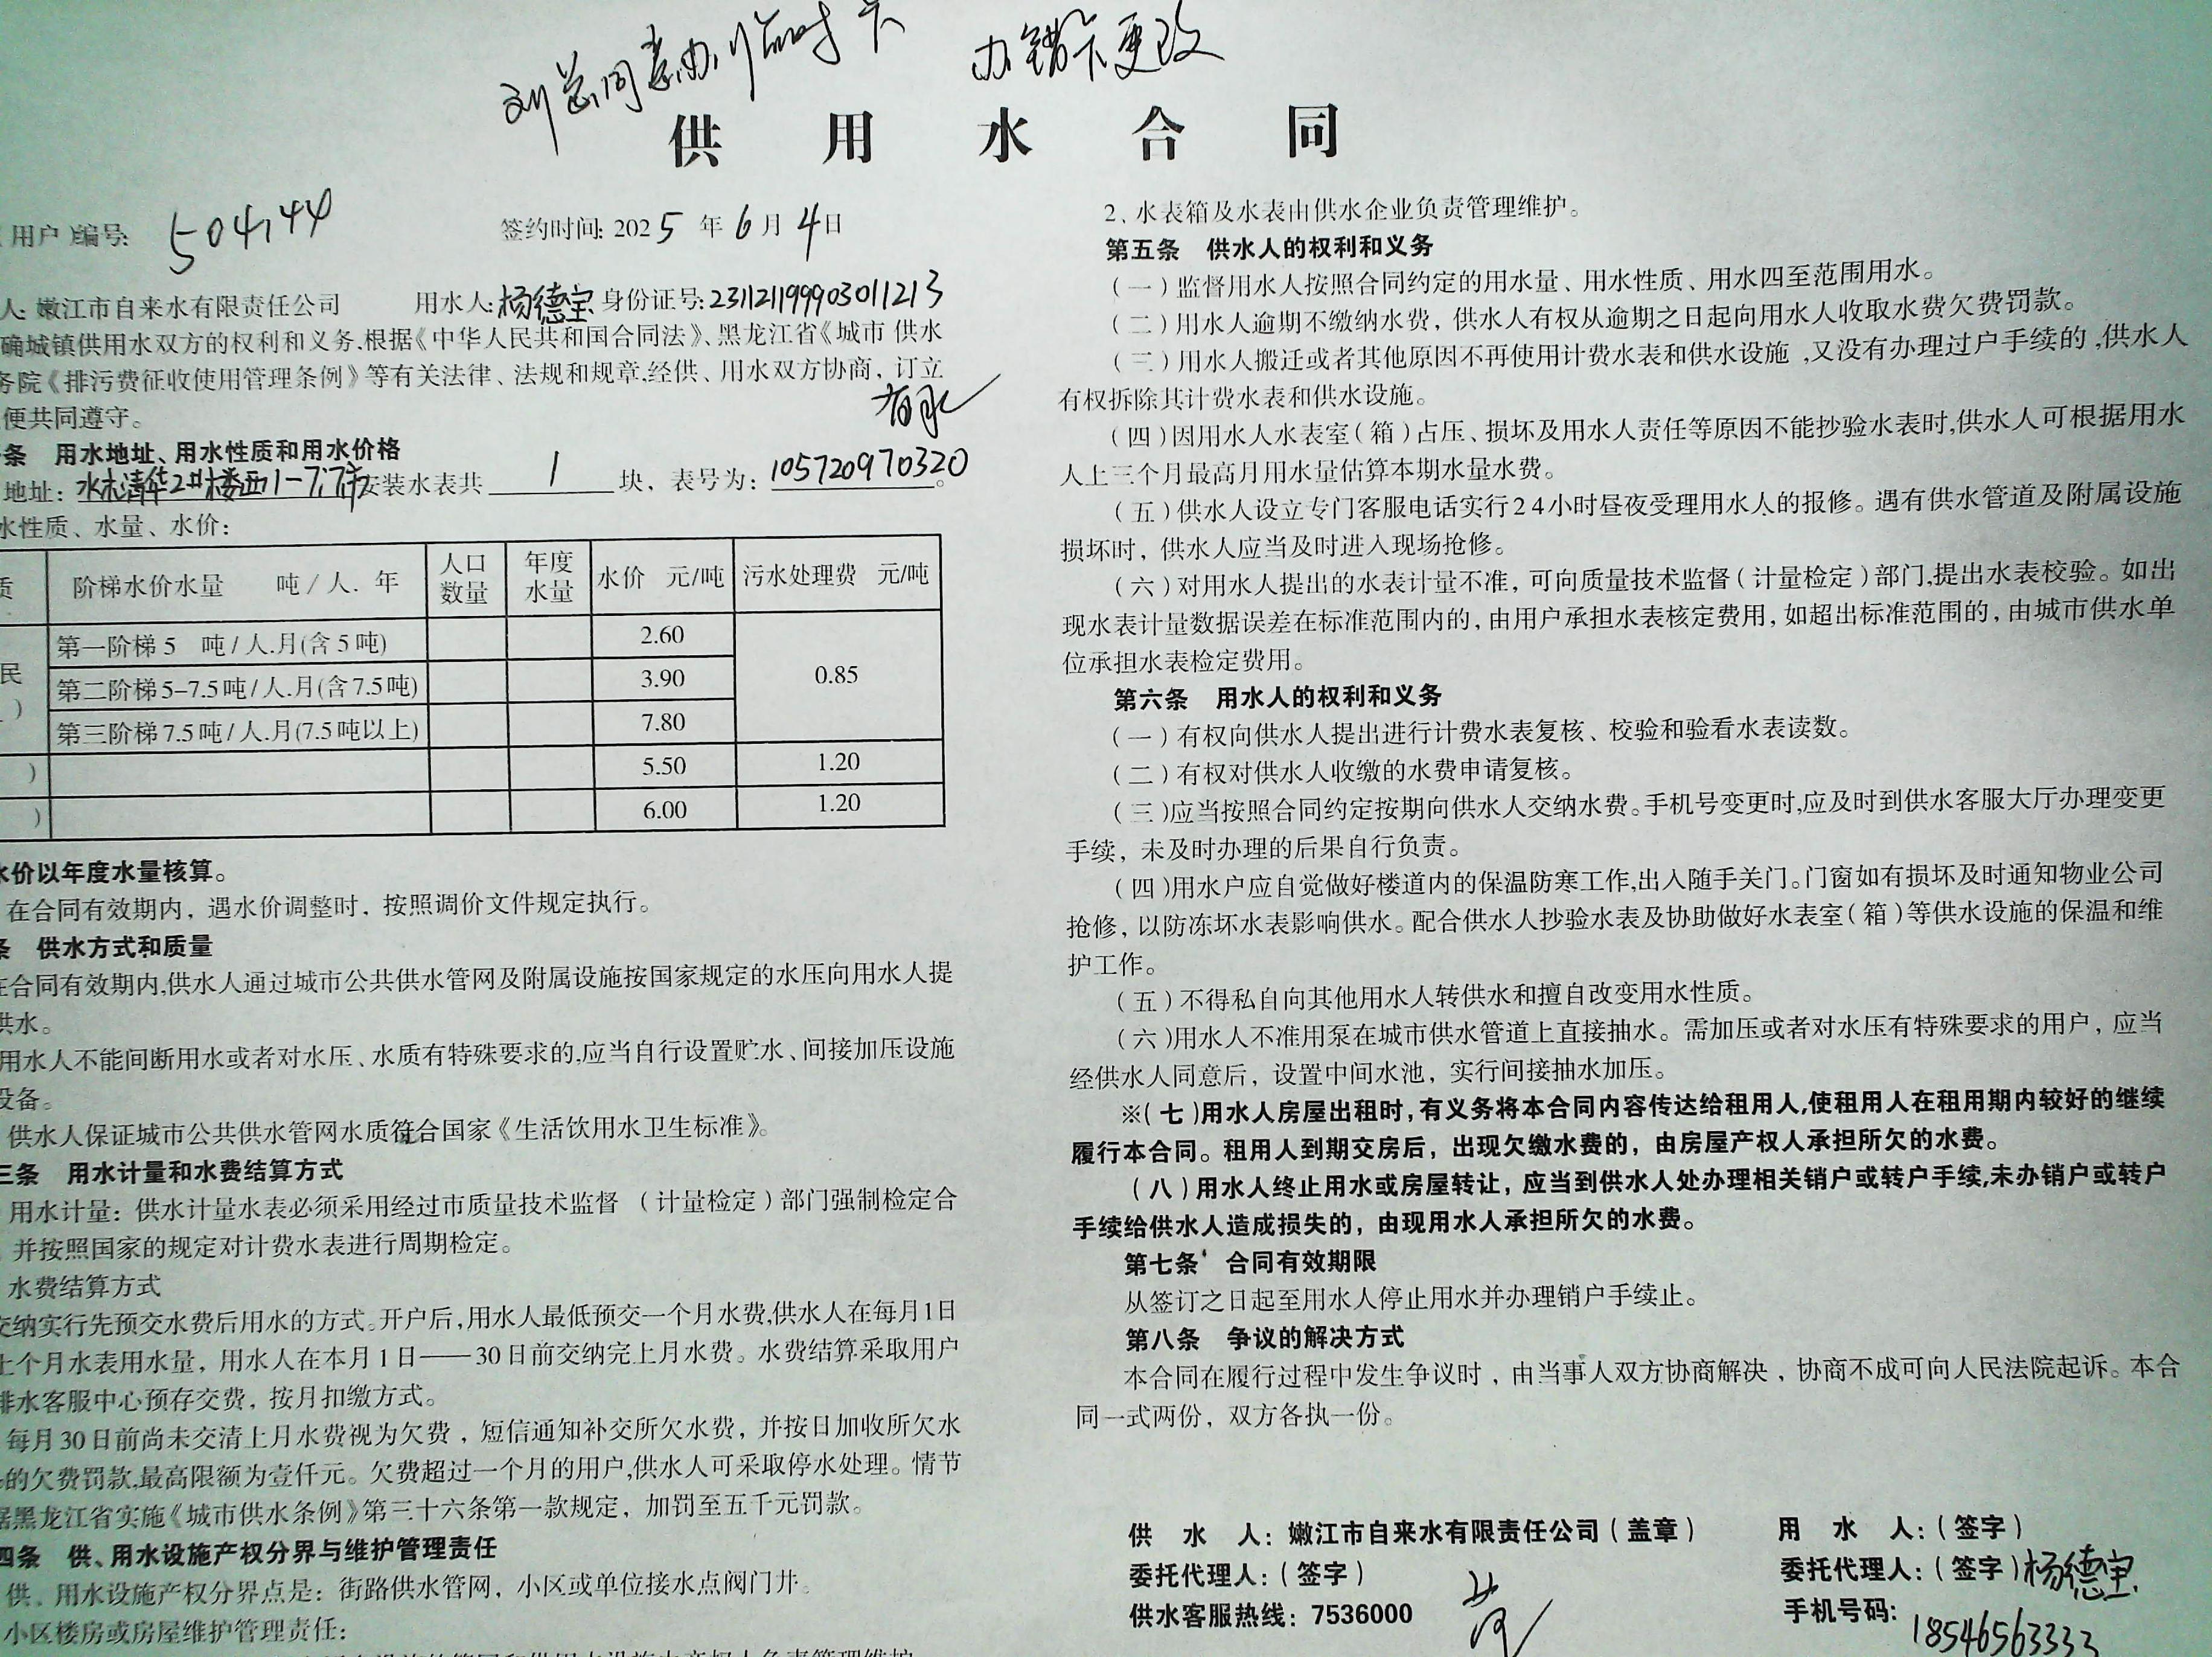 刘总同意办临时卡 办错卡更改
供用水合同
用户)编号: 504144
签约时间: 2025年6月4日
人: 嫩江市自来水有限责任公司 用水人: 杨德宝 身份证号: 231121199903011213
确城镇供用水双方的权利和义务,根据《中华人民共和国合同法》、黑龙江省《城市供水
务院《排污费征收使用管理条例》等有关法律、法规和规章,经供、用水双方协商,订立
便共同遵守。
条 用水地址、用水性质和用水价格
地址: 水木清华2#楼西1-7,7门 安装水表共 1 块,表号为: 105720970320。
水性质、水量、水价:
质 阶梯水价水量 吨/人.年 人口数量 年度水量 水价 元/吨 污水处理费 元/吨
第一阶梯5 吨/人.月(含5吨) 2.60
民 第二阶梯5-7.5吨/人.月(含7.5吨) 3.90 0.85
) 第三阶梯7.5吨/人.月(7.5吨以上) 7.80
) 5.50 1.20
) 6.00 1.20
水价以年度水量核算。
在合同有效期内,遇水价调整时,按照调价文件规定执行。
条 供水方式和质量
在合同有效期内,供水人通过城市公共供水管网及附属设施按国家规定的水压向用水人提
供水。
用水人不能间断用水或者对水压、水质有特殊要求的,应当自行设置贮水、间接加压设施
设备。
供水人保证城市公共供水管网水质符合国家《生活饮用水卫生标准》。
三条 用水计量和水费结算方式
用水计量:供水计量水表必须采用经过市质量技术监督(计量检定)部门强制检定合
并按照国家的规定对计费水表进行周期检定。
水费结算方式
交纳实行先预交水费后用水的方式。开户后,用水人最低预交一个月水费,供水人在每月1日
上个月水表用水量,用水人在本月1日——30日前交纳完上月水费。水费结算采取用户
排水客服中心预存交费,按月扣缴方式。
每月30日前尚未交清上月水费视为欠费,短信通知补交所欠水费,并按日加收所欠水
的欠费罚款,最高限额为壹仟元。欠费超过一个月的用户,供水人可采取停水处理。情节
据黑龙江省实施《城市供水条例》第三十六条第一款规定,加罚至五千元罚款。
四条 供、用水设施产权分界与维护管理责任
供、用水设施产权分界点是:街路供水管网,小区或单位接水点阀门井。
小区楼房或房屋维护管理责任:
2、水表箱及水表由供水企业负责管理维护。
第五条 供水人的权利和义务
(一)监督用水人按照合同约定的用水量、用水性质、用水四至范围用水。
(二)用水人逾期不缴纳水费,供水人有权从逾期之日起向用水人收取水费欠费罚款。
(三)用水人搬迁或者其他原因不再使用计费水表和供水设施,又没有办理过户手续的,供水人
有权拆除其计费水表和供水设施。
(四)因用水人水表室(箱)占压、损坏及用水人责任等原因不能抄验水表时,供水人可根据用水
人上三个月最高月用水量估算本期水量水费。
(五)供水人设立专门客服电话实行24小时昼夜受理用水人的报修。遇有供水管道及附属设施
损坏时,供水人应当及时进入现场抢修。
(六)对用水人提出的水表计量不准,可向质量技术监督(计量检定)部门,提出水表校验。如出
现水表计量数据误差在标准范围内的,由用户承担水表核定费用,如超出标准范围的,由城市供水单
位承担水表检定费用。
第六条 用水人的权利和义务
(一)有权向供水人提出进行计费水表复核、校验和验看水表读数。
(二)有权对供水人收缴的水费申请复核。
(三)应当按照合同约定按期向供水人交纳水费。手机号变更时,应及时到供水客服大厅办理变更
手续,未及时办理的后果自行负责。
(四)用水户应自觉做好楼道内的保温防寒工作,出入随手关门。门窗如有损坏及时通知物业公司
抢修,以防冻坏水表影响供水。配合供水人抄验水表及协助做好水表室(箱)等供水设施的保温和维
护工作。
(五)不得私自向其他用水人转供水和擅自改变用水性质。
(六)用水人不准用泵在城市供水管道上直接抽水。需加压或者对水压有特殊要求的用户,应当
经供水人同意后,设置中间水池,实行间接抽水加压。
※(七)用水人房屋出租时,有义务将本合同内容传达给租用人,使租用人在租用期内较好的继续
履行本合同。租用人到期交房后,出现欠缴水费的,由房屋产权人承担所欠的水费。
(八)用水人终止用水或房屋转让,应当到供水人处办理相关销户或转户手续,未办销户或转户
手续给供水人造成损失的,由现用水人承担所欠的水费。
第七条 合同有效期限
从签订之日起至用水人停止用水并办理销户手续止。
第八条 争议的解决方式
本合同在履行过程中发生争议时,由当事人双方协商解决,协商不成可向人民法院起诉。本合
同一式两份,双方各执一份。
供水人:嫩江市自来水有限责任公司(盖章) 用水人:(签字)
委托代理人:(签字) 委托代理人:(签字)杨德宝
供水客服热线:7536000 手机号码: 18546563333